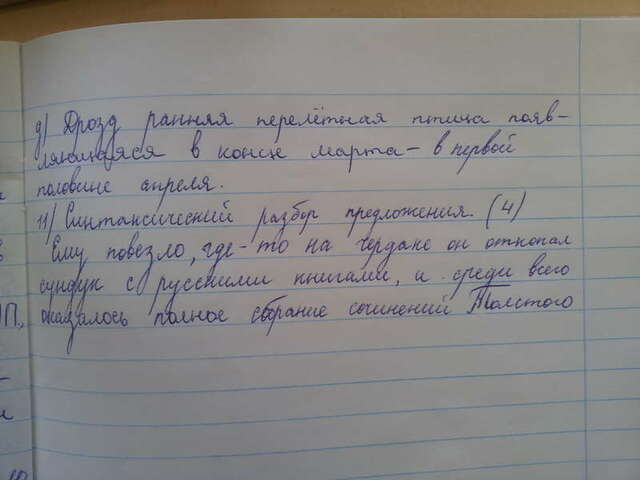 д) Дрозд ранняя перелётная птица появ-
ляющаяся в конце марта - в первой
половине апреля.
11) Синтаксический разбор предложения. (4)
Ему повезло, где-то на чердаке он откопал
сундук с русскими книгами, и среди всего
оказалось полное собрание сочинений Толстого